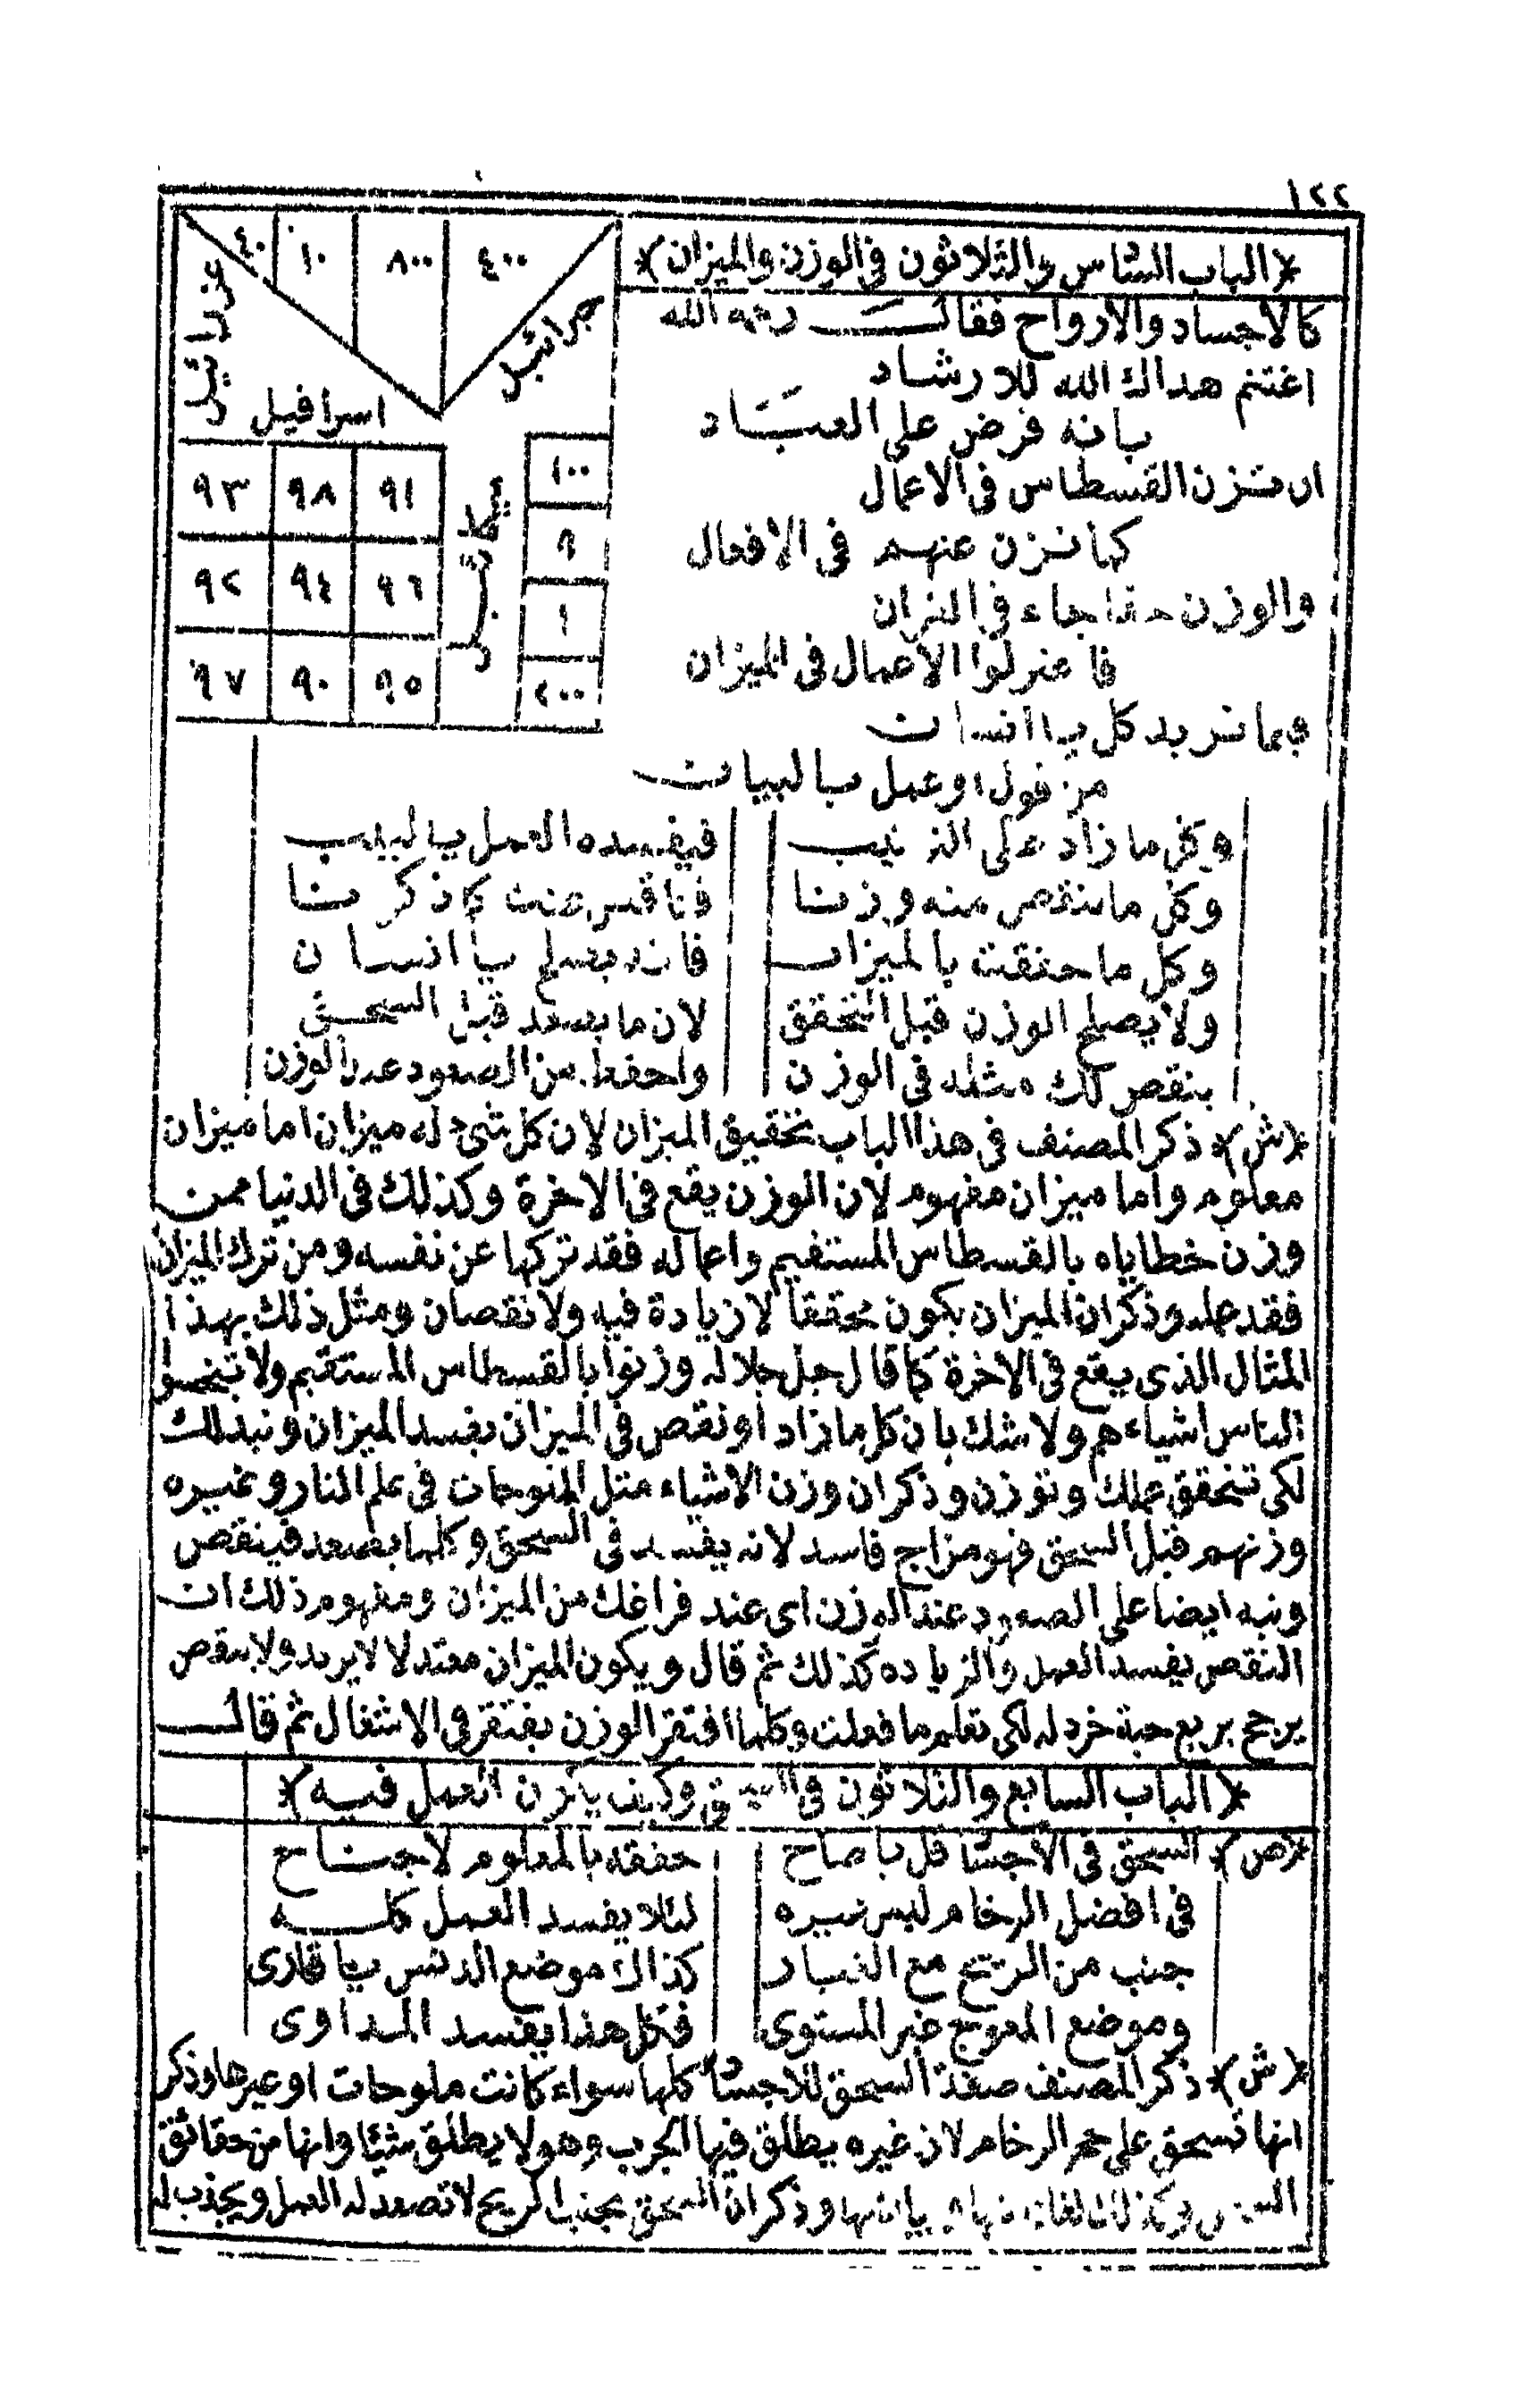 ١٢٢
﴿الباب السادس والثلاثون فى الوزن والميزان﴾
كالاجساد والارواح فقال رحمه الله
اغتنم هداك الله للارشاد
بانه فرض على العباد
ان تزن القسطاس فى الاعمال
كما تزن عنهم فى الافعال
والوزن حقا جاء فى
الاعمال فى الميزان
تريد كل يا انسان
من قول او عمل بالبيان
٤٠ ١٠ ٨٠٠ ٤٠٠
جبرائيل
عزرائيل
اسرافيل
ميكائيل
١٠٠
٩
١
٢٠٠
٩٣ ٩٨ ٩١
٩٢ ٩٤ ٩٦
٩٧ ٩٠ ٩٥
وكل ما زاد على فيفسده العمل
وكل ما ينقص منه وزنا كما ذكرنا
وكل ما حققت بالميزان فانه يصلح يا انسان
ولا يصلح الوزن قبل التحقق لان ما يصعد قبل السحق
ينقص لك مثله فى الوزن واحفظ من الصعود عند الوزن
﴿ش﴾ ذكر المصنف فى هذا الباب تحقيق الميزان لان كل شئ له ميزان اما ميزان
معلوم واما ميزان مفهوم لان الوزن يقع فى الاخرة وكذلك فى الدنيا فمن
وزن خطاياه بالقسطاس المستقيم واعماله فقد تركها عن نفسه ومن ترك الميزان
فقد عمله وذكر ان الميزان يكون محققا لا زيادة فيه ولا نقصان ومثل ذلك بهذا
المثال الذى يقع فى الاخرة كما قال جل جلاله وزنوا بالقسطاس المستقيم ولا تبخسوا
الناس اشياءهم ولا شك بان كل ما زاد او نقص فى الميزان يفسد الميزان
لكى تتحقق عملك وتوزن وذكر ان وزن الاشياء مثل الملوحات فى علم النار وغيره
وزنهم قبل السحق فهو مزاج فاسد لانه يفسد فى السحق وكلما يصعد فينقص
ونبه ايضا على الصعود عند الوزن اى عند فراغك من الميزان ومفهوم ذلك ان
النقص يفسد العمل والزياده كذلك ثم قال ويكون الميزان معتدلا لا يزيد ولا ينقص
يرجح بربع حبة خردله لكى تعلم ما فعلت وكلما افتقر الوزن يفتقر فى الاشغال ثم قال
﴿الباب السابع والثلاثون فى السحق وكيف يأتزن العمل فيه﴾
﴿ص﴾ السحق فى الاجساد قل يا صاح حققه بالمعلوم لا جناح
فى افضل الرخام ليس غيره لئلا يفسد العمل كله
جنب من الريح مع الغبار كذاك موضع الدنس يا قارى
وموضع المعوج غير المستوى فكل هذا يفسد المداوى
﴿ش﴾ ذكر المصنف صفة السحق للاجساد كلها سواء كانت ملوحات او غيرها وذكر
انها تسحق على حجر الرخام لان غيره يطلق فيها الجرب وهو لا يطلق شيئا وانها من حقائق
وذكر ان السحق يجنب الريح لا تصعد له العمل ويجذب له